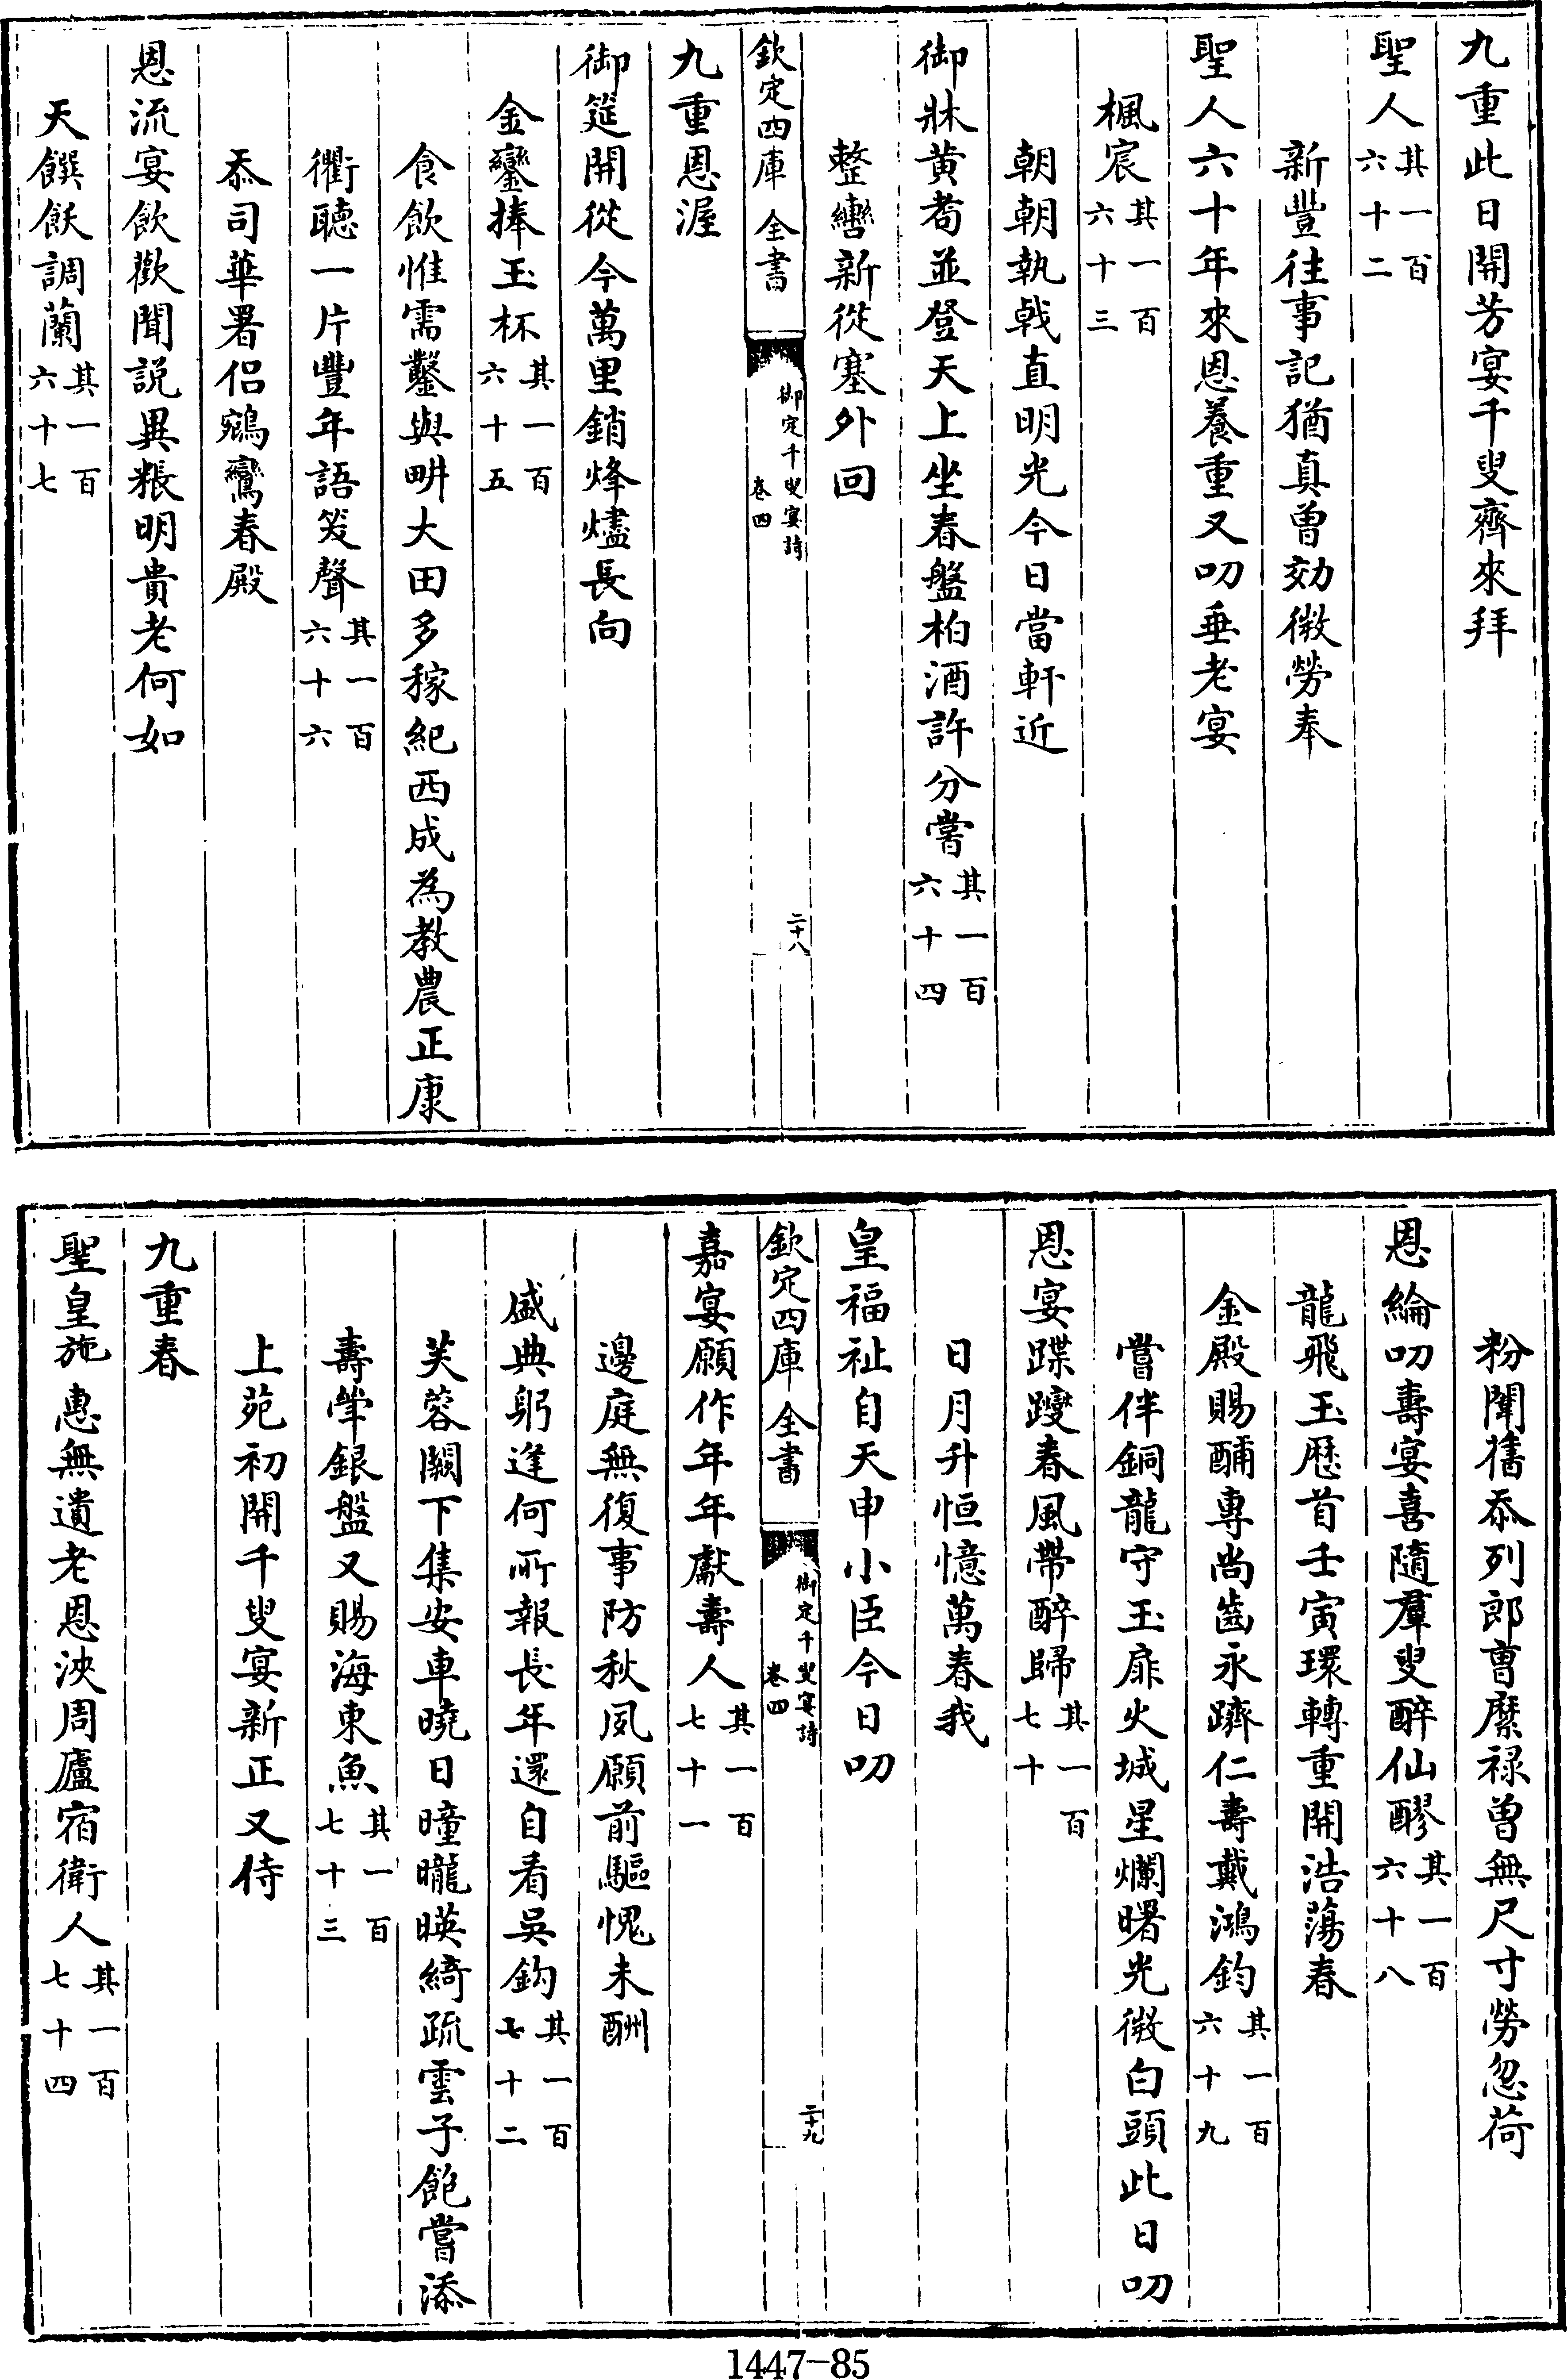 九重此日開芳宴千叟齊來拜
聖人其一百六十二
新豐往事記猶真曾効微勞奉
聖人六十年來恩養重又叨垂老宴
楓宸其一百六十三
朝朝執戟直明光今日當軒近
御牀黄耇並登天上坐春盤柏酒許分嘗其一百六十四
整轡新從塞外回
欽定四庫全書
御定千叟宴詩
卷四
二十八
九重恩渥
御筵開從今萬里銷烽燧長向
金鑾捧玉杯其一百六十五
食飲惟需鑿與畊大田多稼紀西成為教農正康
衢聽一片豐年語笑聲其一百六十六
忝司華署侣鵷鸞春殿
恩流宴飲歡聞説異粻明貴老何如
天饌飫調蘭其一百六十七
粉闈舊忝列郎曹縻禄曾無尺寸勞忽荷
恩綸叨壽宴喜隨羣叟醉仙醪其一百六十八
龍飛玉歴首壬寅環轉重開浩蕩春
金殿賜酺專尚齒永躋仁壽戴鴻鈞其一百六十九
嘗伴銅龍守玉扉火城星爛曙光微白頭此日叨
恩宴蹀躞春風帶醉歸其一百七十
日月升恒憶萬春我
皇福祉自天申小臣今日叨
欽定四庫全書
御定千叟宴詩
卷四
二十九
嘉宴願作年年獻壽人其一百七十一
邊庭無復事防秋夙願前驅愧未酬
盛典躬逢何所報長年還自看吳鈎其一百七十二
芙蓉闕下集安車曉日曈曨暎綺疏雲子飽嘗添
壽斝銀盤又賜海東魚其一百七十三
上苑初開千叟宴新正又侍
九重春
聖皇施惠無遺老恩浹周廬宿衛人其一百七十四
1447-85